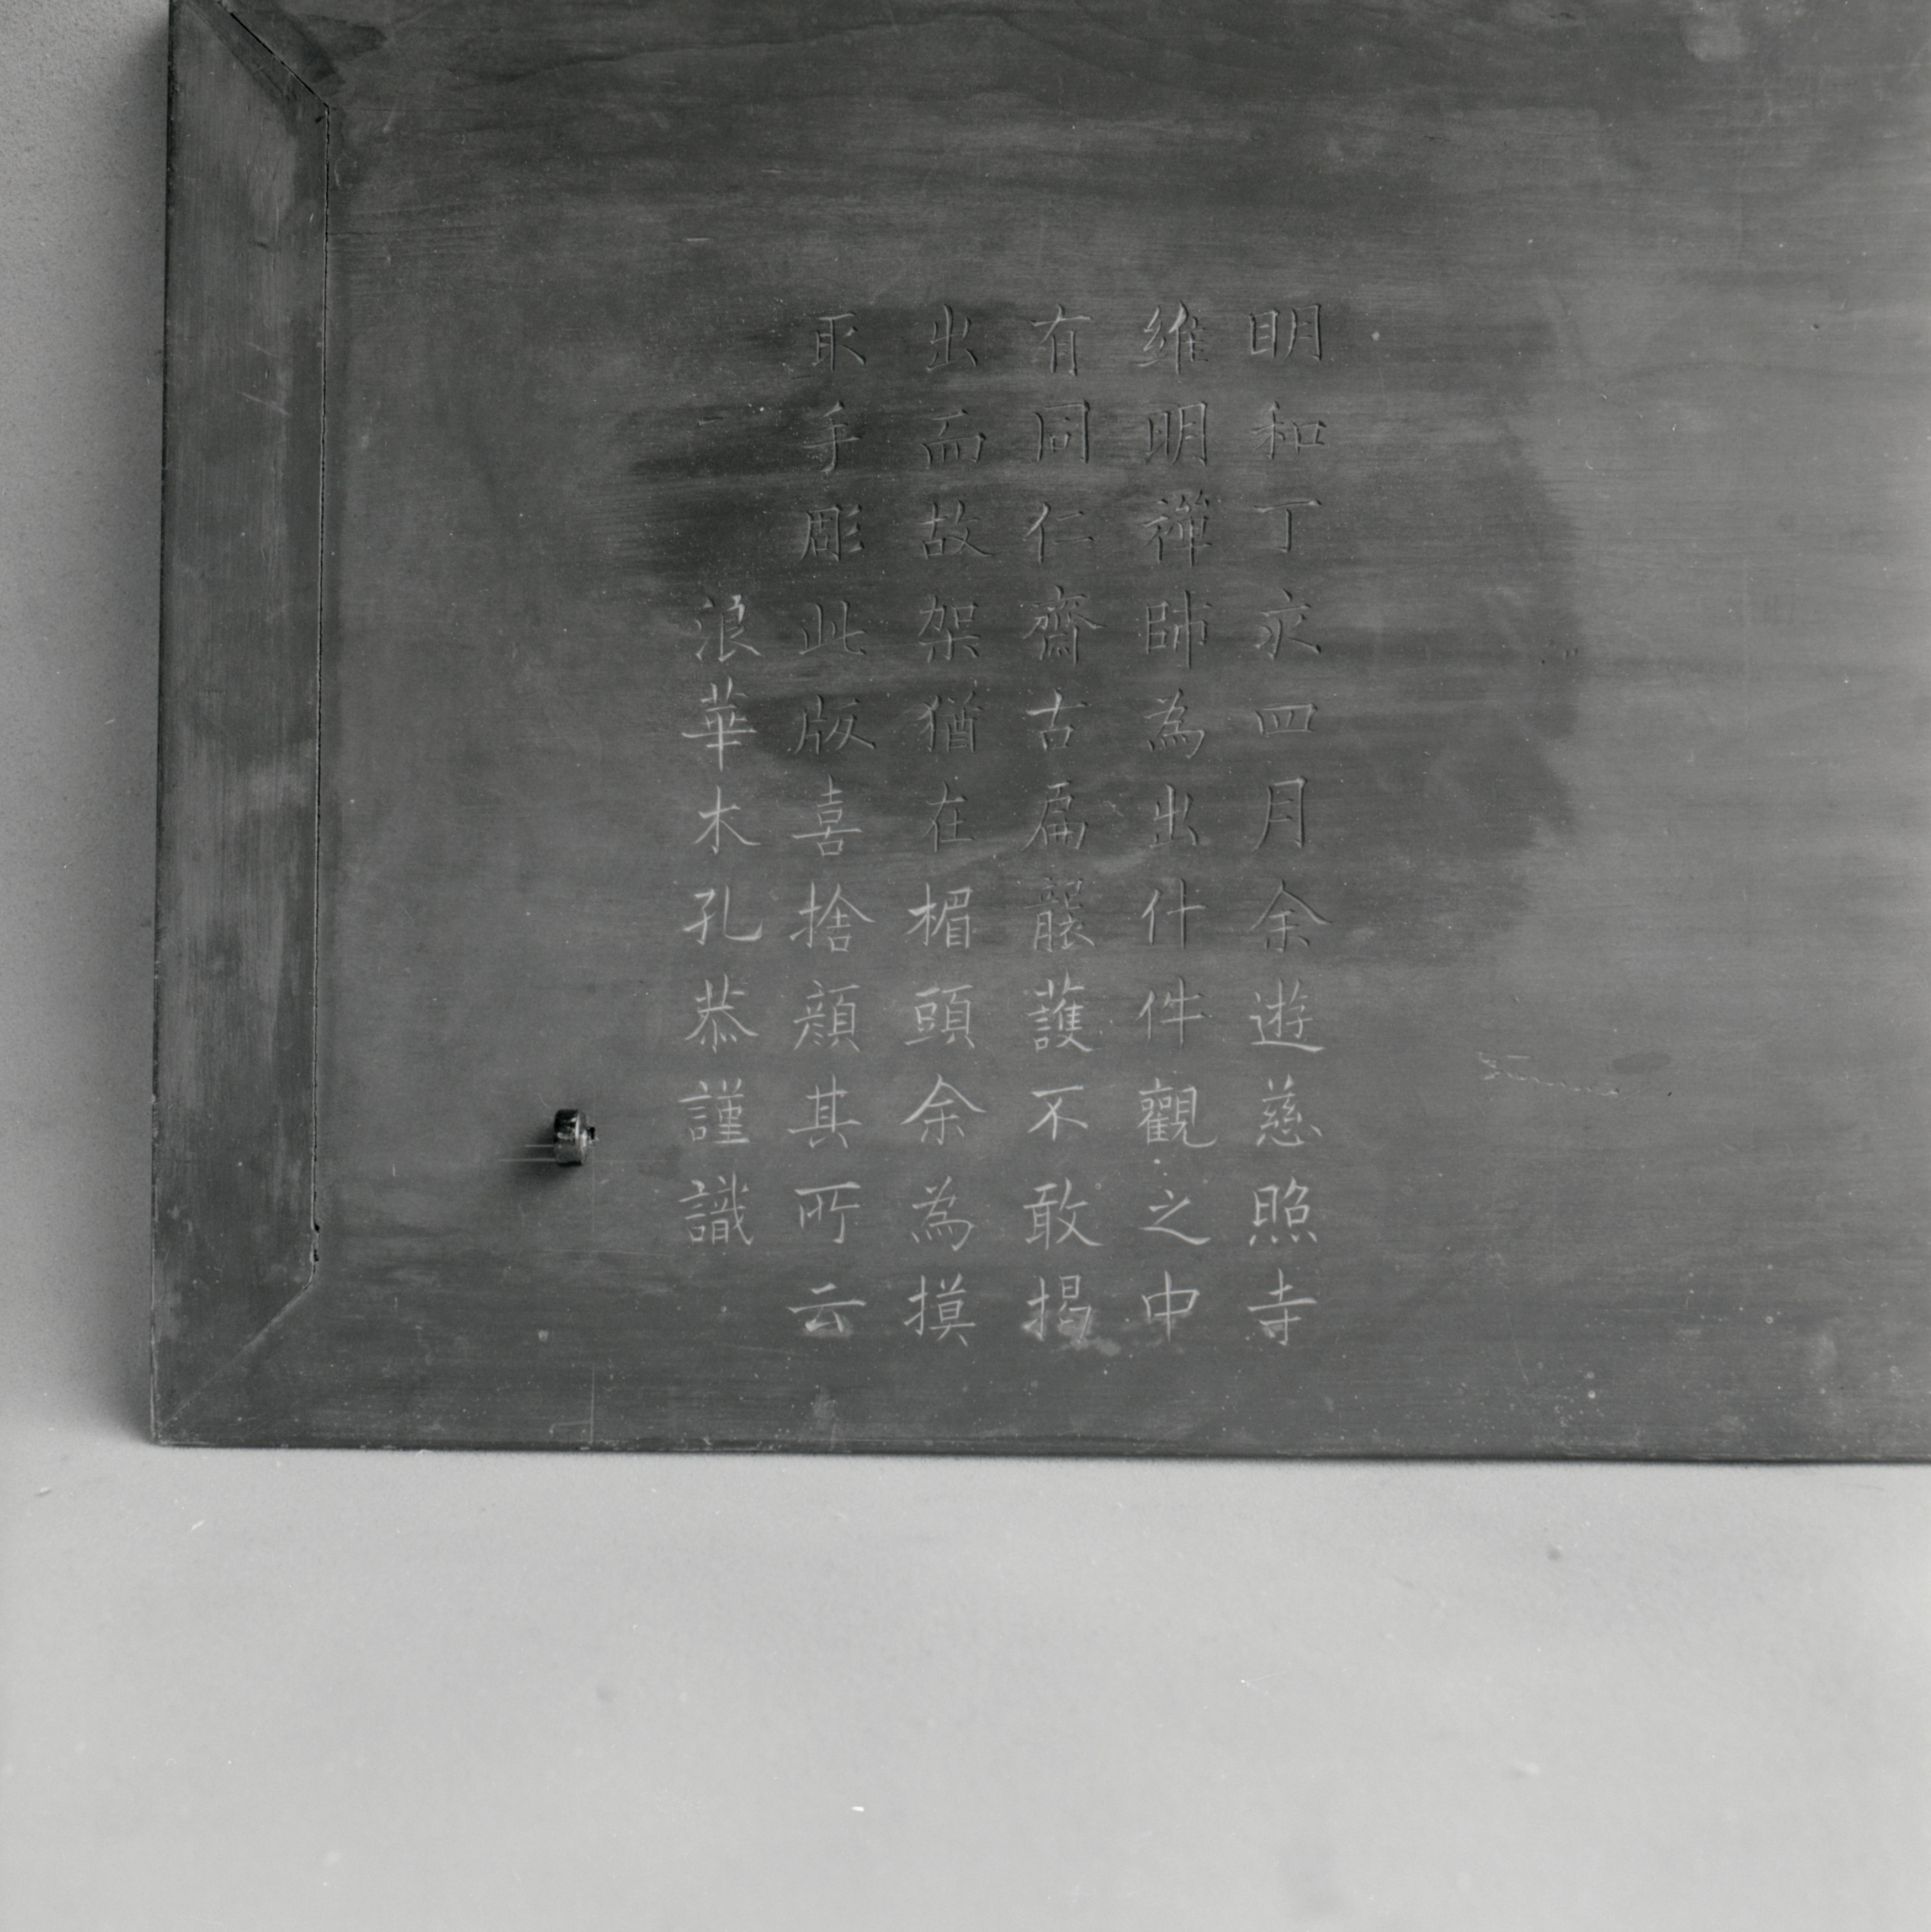 明和丁亥四月余遊慈照寺
維明禅師為出什件觀之中
有同仁齋古扁襲護不敢揭
出而故架猶在楣頭余為摸
取手彫此版喜捨顔其所云
浪華木孔恭謹識